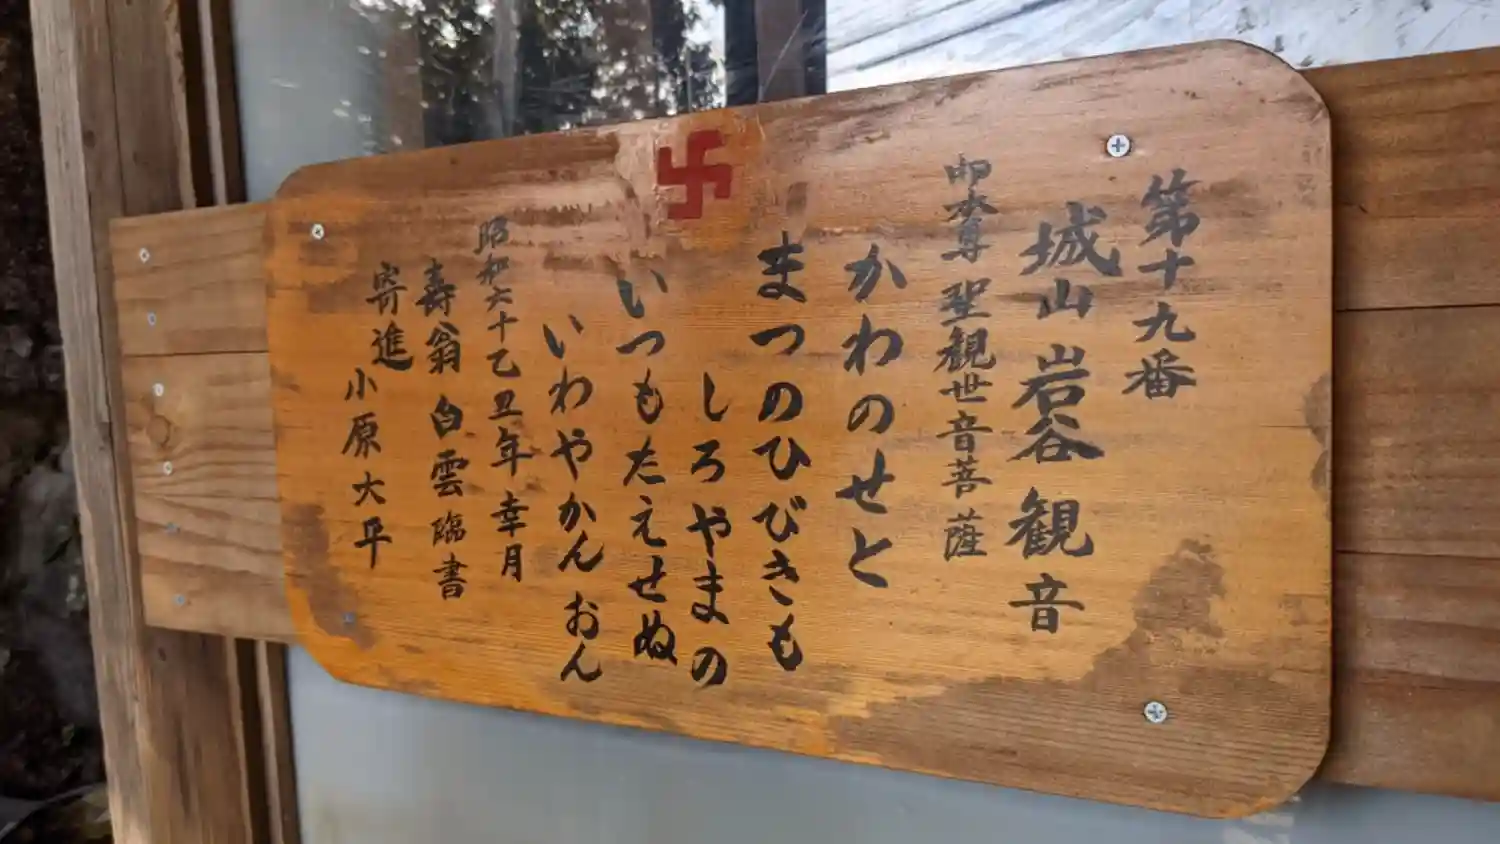 第十九番
城山 岩谷 観音
御本尊 聖観世音菩薩
かわのせと
まつのひびきも
しろやまの
いつもたえせぬ
いわやかんおん
昭和六十乙丑年 幸月
壽翁 白雲 臨書
寄進 小原大平